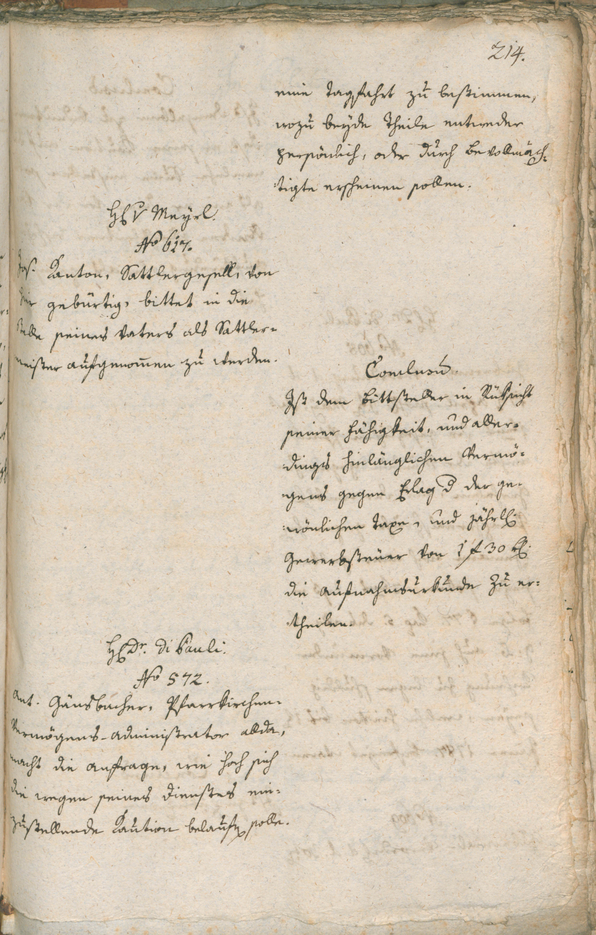 214.
eine Tagfahrt zu bestimmen,
wozu beyde Theile entweder
persönlich, oder durch bevollmäch-
tigte erscheinen sollen.
H v Meyrl.
No 617.
Jos. Kanton, Sattlergesell, von
hier gebürtig, bittet in die
Stelle seines Vaters als Sattler-
meister aufgenommen zu werden.
Conclusum
Ist dem Bittsteller in Rüksicht
seiner Fähigkeit, und aller-
dings hinlänglichen Vermö-
gens gegen Erlag der ge-
wönlichen Taxe, und jährl.
Gewerbsteuer von 1 f 30 k
die Aufnahmsurkunde zu er-
theilen.
H Dr. di Pauli.
No 572.
Ant. Gänsbacher, Pfarrkirchen-
Vermögens-administrator allda,
macht die Anfrage, wie hoch sich
die wegen seines Dienstes ein-
zustellende Kaution belaufen solle.